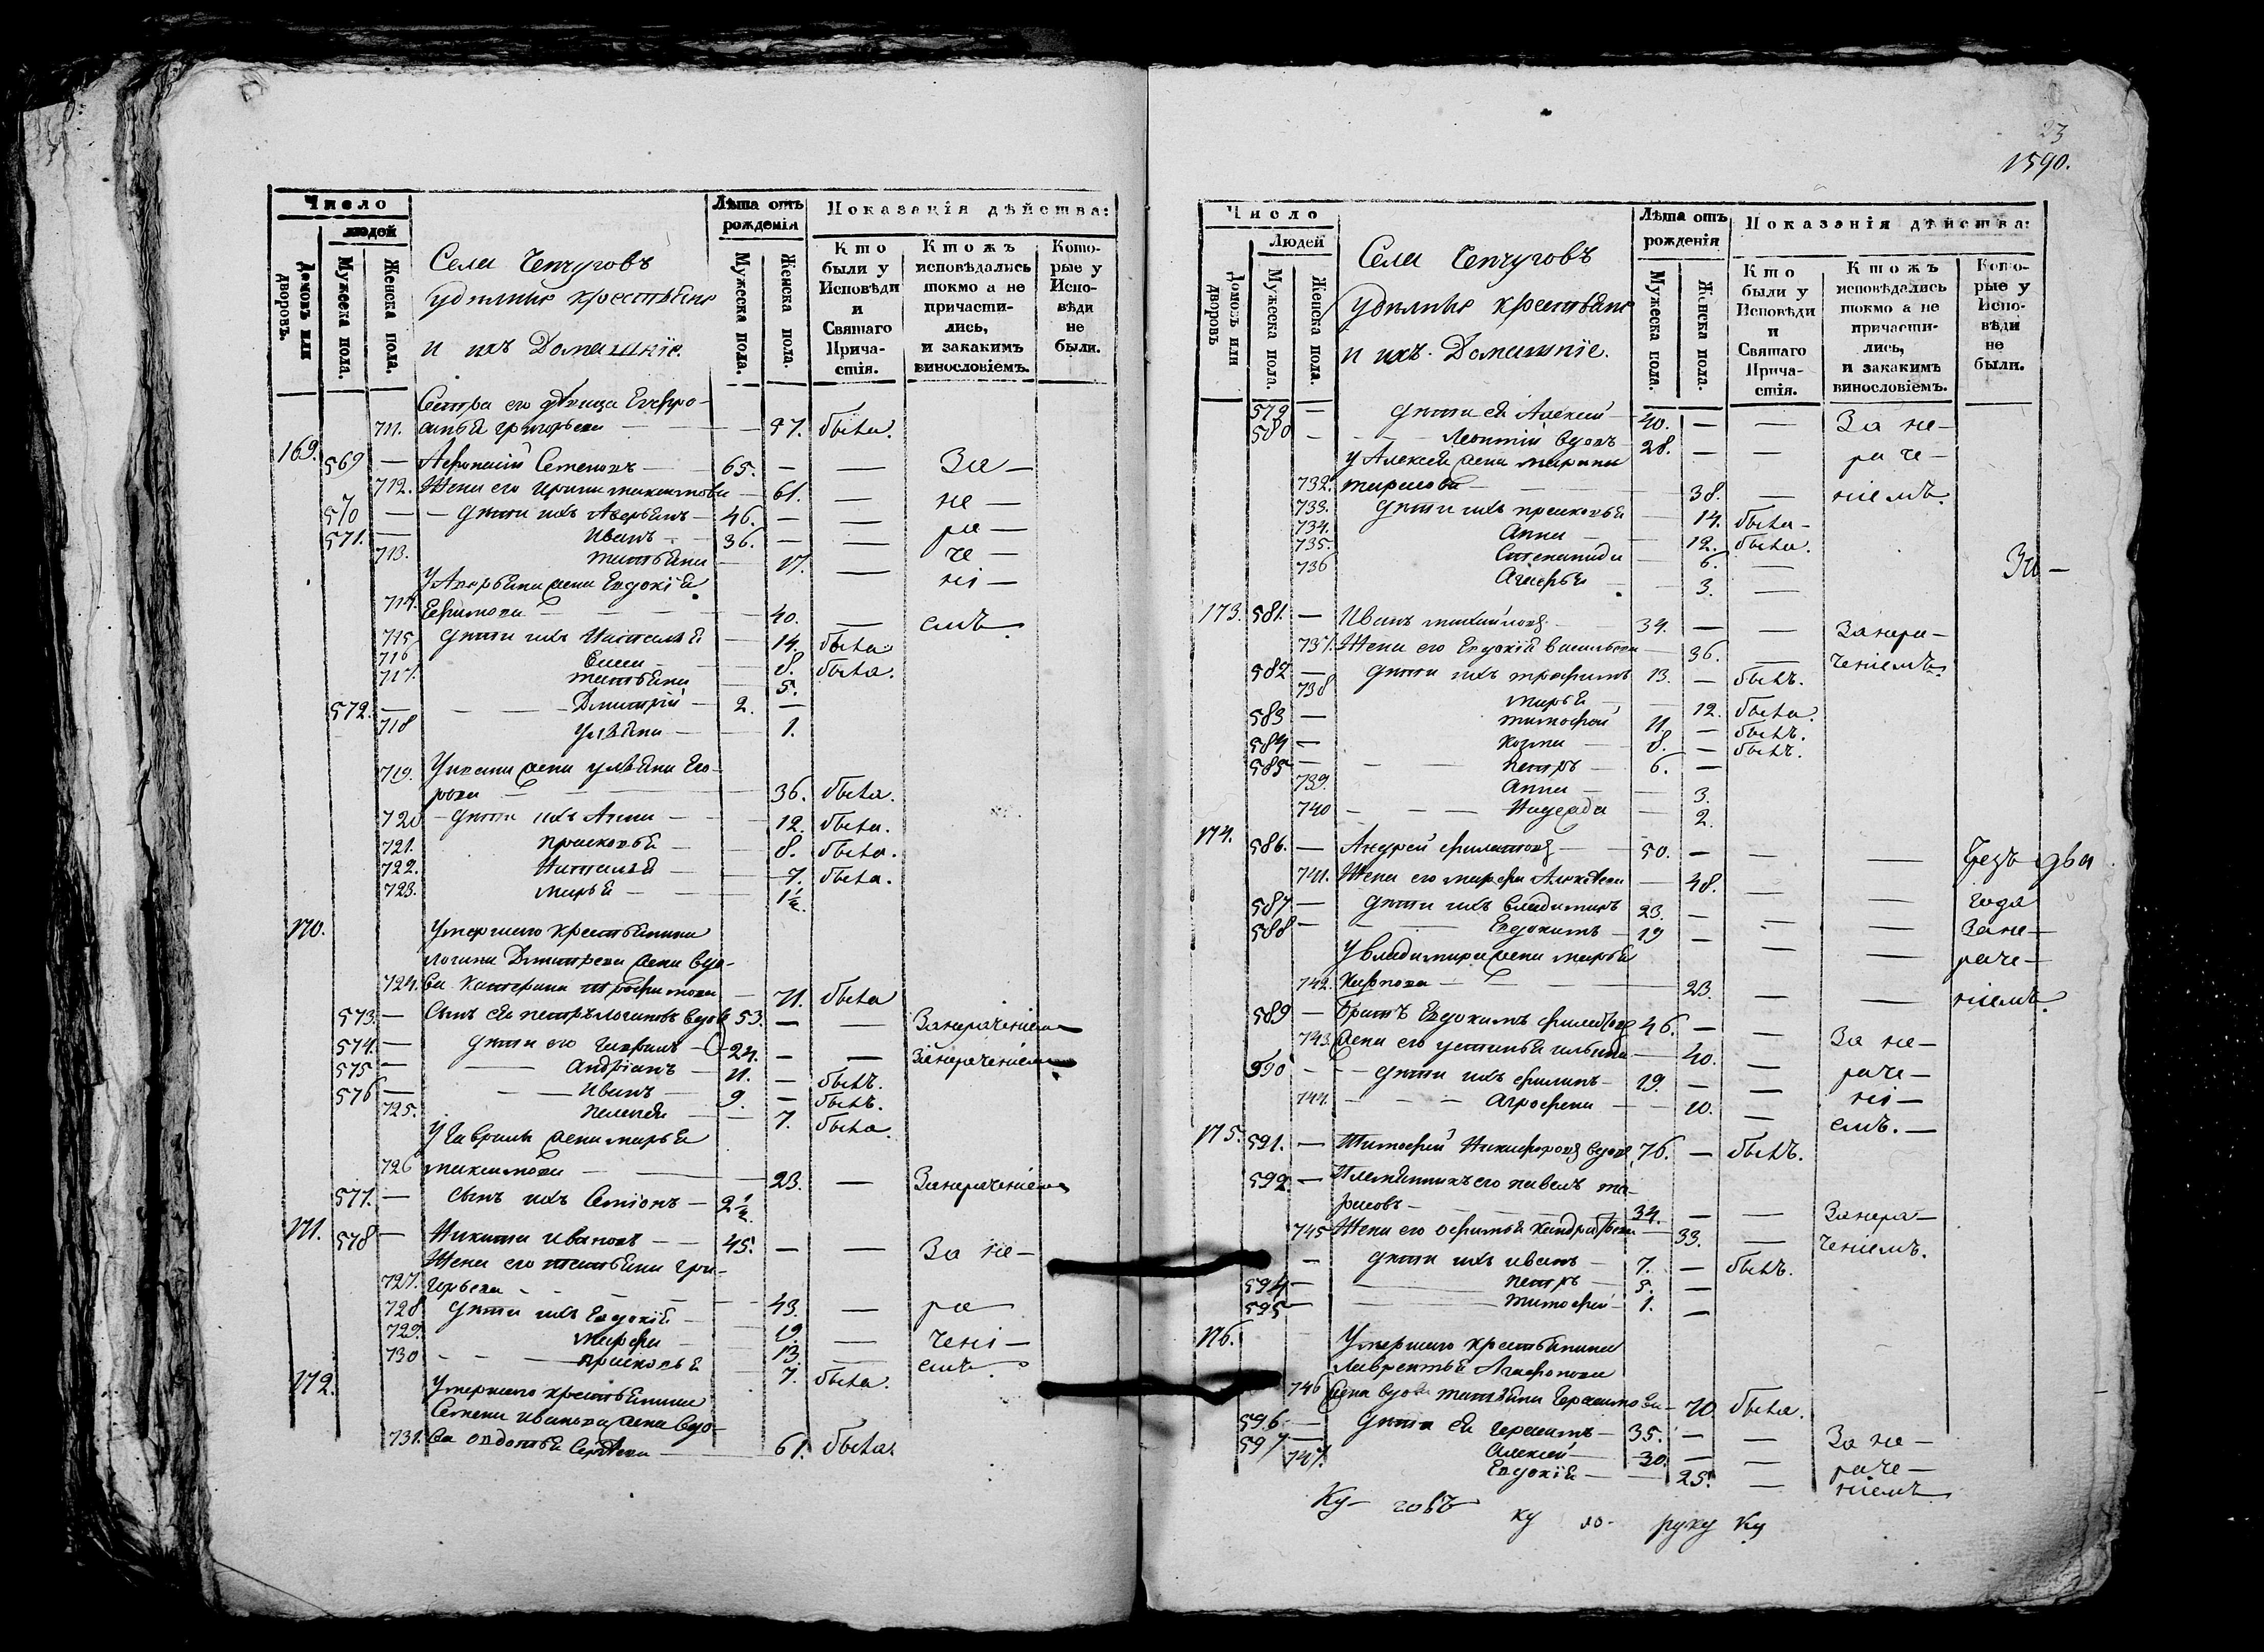 Число
людей
Домовъ или дворовъ.
Мужеска пола.
Женска пола.
Села Чепчуговъ
удѣлные крестьяне
и ихъ Домашніе.
Лѣта отъ рожденія
Мужеска пола.
Женска пола.
Показанія дѣйства:
Кто были у Исповѣди и Святаго Причастія.
Ктожъ исповѣдались токмо а не причастились, и закакимъ винословіемъ.
Которые у Исповѣди не были.
Сестра его дѣвица Евфро-
711. синья Григорьева — — 57. была.
169. 569 — Афонасий Семеновъ — 65. — — За —
712. Жена его Ирина Максимова — 61. — не —
570 — — дѣти ихъ Аверьянъ — 46. — — ра —
571. — Иванъ — 36. — — че —
713. Татьяна — 17. — ні —
У Аверьяна жена Евдокія
714. Ефимова — — — 40. — емъ
715 дѣти ихъ Наталья — 14. была
716 Анна — 8. была.
717. Татьяна — 5.
572. — — — Дмитрій — 2. —
718 Ульяна — — 1.
719. У Ивана жена Ульяна Его-
рова — — 36. была.
720 — дѣти ихъ Анна — — 12. была.
721. Прасковья — — 8. была.
722. Наталья — — 7. была.
723. Марья — — 1½.
170. Умершаго крестьянина
Логина Дмитрева жена вдо-
724. ва Катерина Трофимова — 71. была
573. — Сынъ ея Петръ Логиновъ вдовъ 53. — — Занерачениемъ
574. — дѣти его Гаврилъ — 24. — — Занерачениемъ
575 — — Андріанъ — 11. — былъ.
576 — — — Иванъ — 9. — былъ.
725. Пелагея — — 7. была.
У Гаврилы жена Марья
726 Максимова — — — 23. — Занерачениемъ
577. — сынъ ихъ Семіонъ — 2½.
171. 578 — Никита Ивановъ — — 45. — — За не —
Жена его Татьяна Гри-
727. горьева — — — 43. — ра
728 дѣти ихъ Евдокія — — 19. — чені —
729. Марфа — — 13. — емъ.
730 — — — Прасковья 7. была.
172. Умершаго крестьянина
Семена Иванова жена вдо-
731. ва Авдотья Сергѣева — 61. была.
23
1590.
Число
Людей
Домовъ или дворовъ
Мужеска пола.
Женска пола.
Села Чепчуговъ
удѣлные крестьяне
и ихъ Домашніе.
Лѣта отъ рожденія
Мужеска пола.
Женска пола.
Показанія дѣйства:
Кто были у Исповѣди и Святаго Причастія.
Ктожъ исповѣдались токмо а не причастились, и закакимъ винословіемъ.
Которые у Исповѣди не были.
579 — дѣти ея Алексей — 40. — — За не —
580 — — — Леонтий вдовъ — 28. — — ра че —
У Алексея жена Марина
732. Тарасова — — 38. — ниемъ.
733. дѣти ихъ Прасковья — 14. была —
734. Анна — 12. была.
735. Степанида — 6. —
736 Агафья — 3. — За —
173. 581. — Иванъ Михайловъ — 34. — — Занера —
737. Жена его Евдокія Васильева — 36. — чениемъ.
582 — дѣти ихъ Трофимъ 13. — былъ.
738 Марья — 12. была.
583 — Тимофей 11. — былъ.
584 — Козма 8. — былъ.
585 — — — Петръ — 6. —
739. Анна — 3.
740 — — — Надежда — 2.
174. 586. — Андрей Филатовъ — 50. — — — Чрезъ два
741. Жена его Марфа Алексѣева — 48. — — года
587 — дѣти ихъ Владимиръ 23. — — — Зане —
588 — — Евдокимъ — 19 — — — раче —
У Владимира жена Марья
742. Карпова — — 23. — — ниемъ.
589 — Братъ Евдокимъ Филатовъ 46. — — За не —
743. Жена его Устинья Ильина — 40. — раче —
590 — — дѣти ихъ Филипъ — 19. — — ні —
744. — — — Агрофена — — 10. — емъ. —
175. 591. — Тимофей Никифоровъ вдовъ 76. — былъ.
592 — Племянникъ его Павелъ Та-
расовъ — — — 34. — — Занера —
745 Жена его Офимья Кондратьева — 33. — чениемъ.
— дѣти ихъ Иванъ — 7. — былъ.
594 — — Петръ — 5. —
595 — — Тимофей — 1. —
176. Умершаго крестьянина
Лаврентья Агафонова
746 жена вдова Татьяна Герасимова — 70. была.
596. — дѣти ея Герасимъ — 35. — — За не —
597 — Алексей — 30. — — раче —
747. Евдокія — — 25. — ниемъ
Ку — говъ ку ло — руку Ку